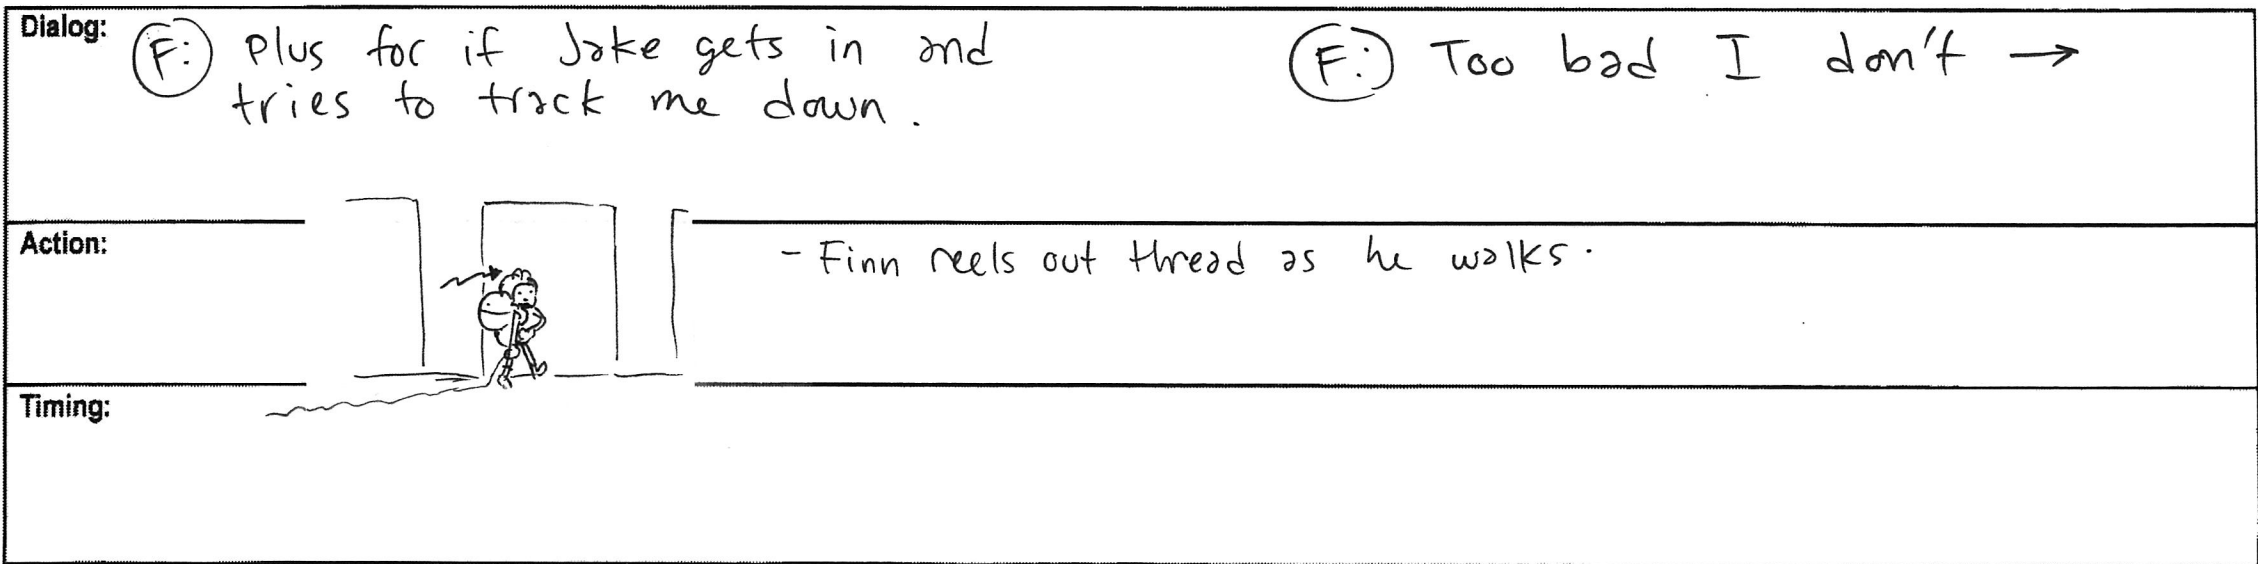 Dialog:
F: Plus for if Jake gets in and
tries to track me down.
F: Too bad I don't →
Action:
- Finn reels out thread as he walks.
Timing: